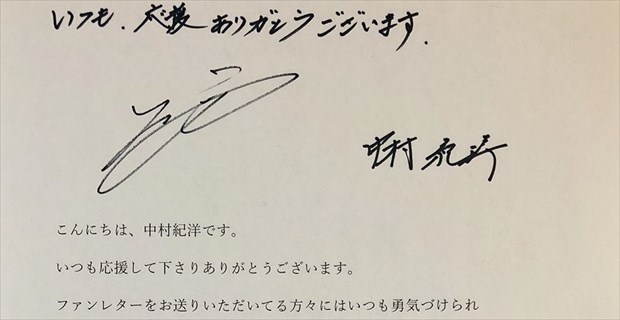 いつも、応援ありがとうございます.
中村紀洋
こんにちは、中村紀洋です。
いつも応援して下さりありがとうございます。
ファンレターをお送りいただいてる方々にはいつも勇気づけられ